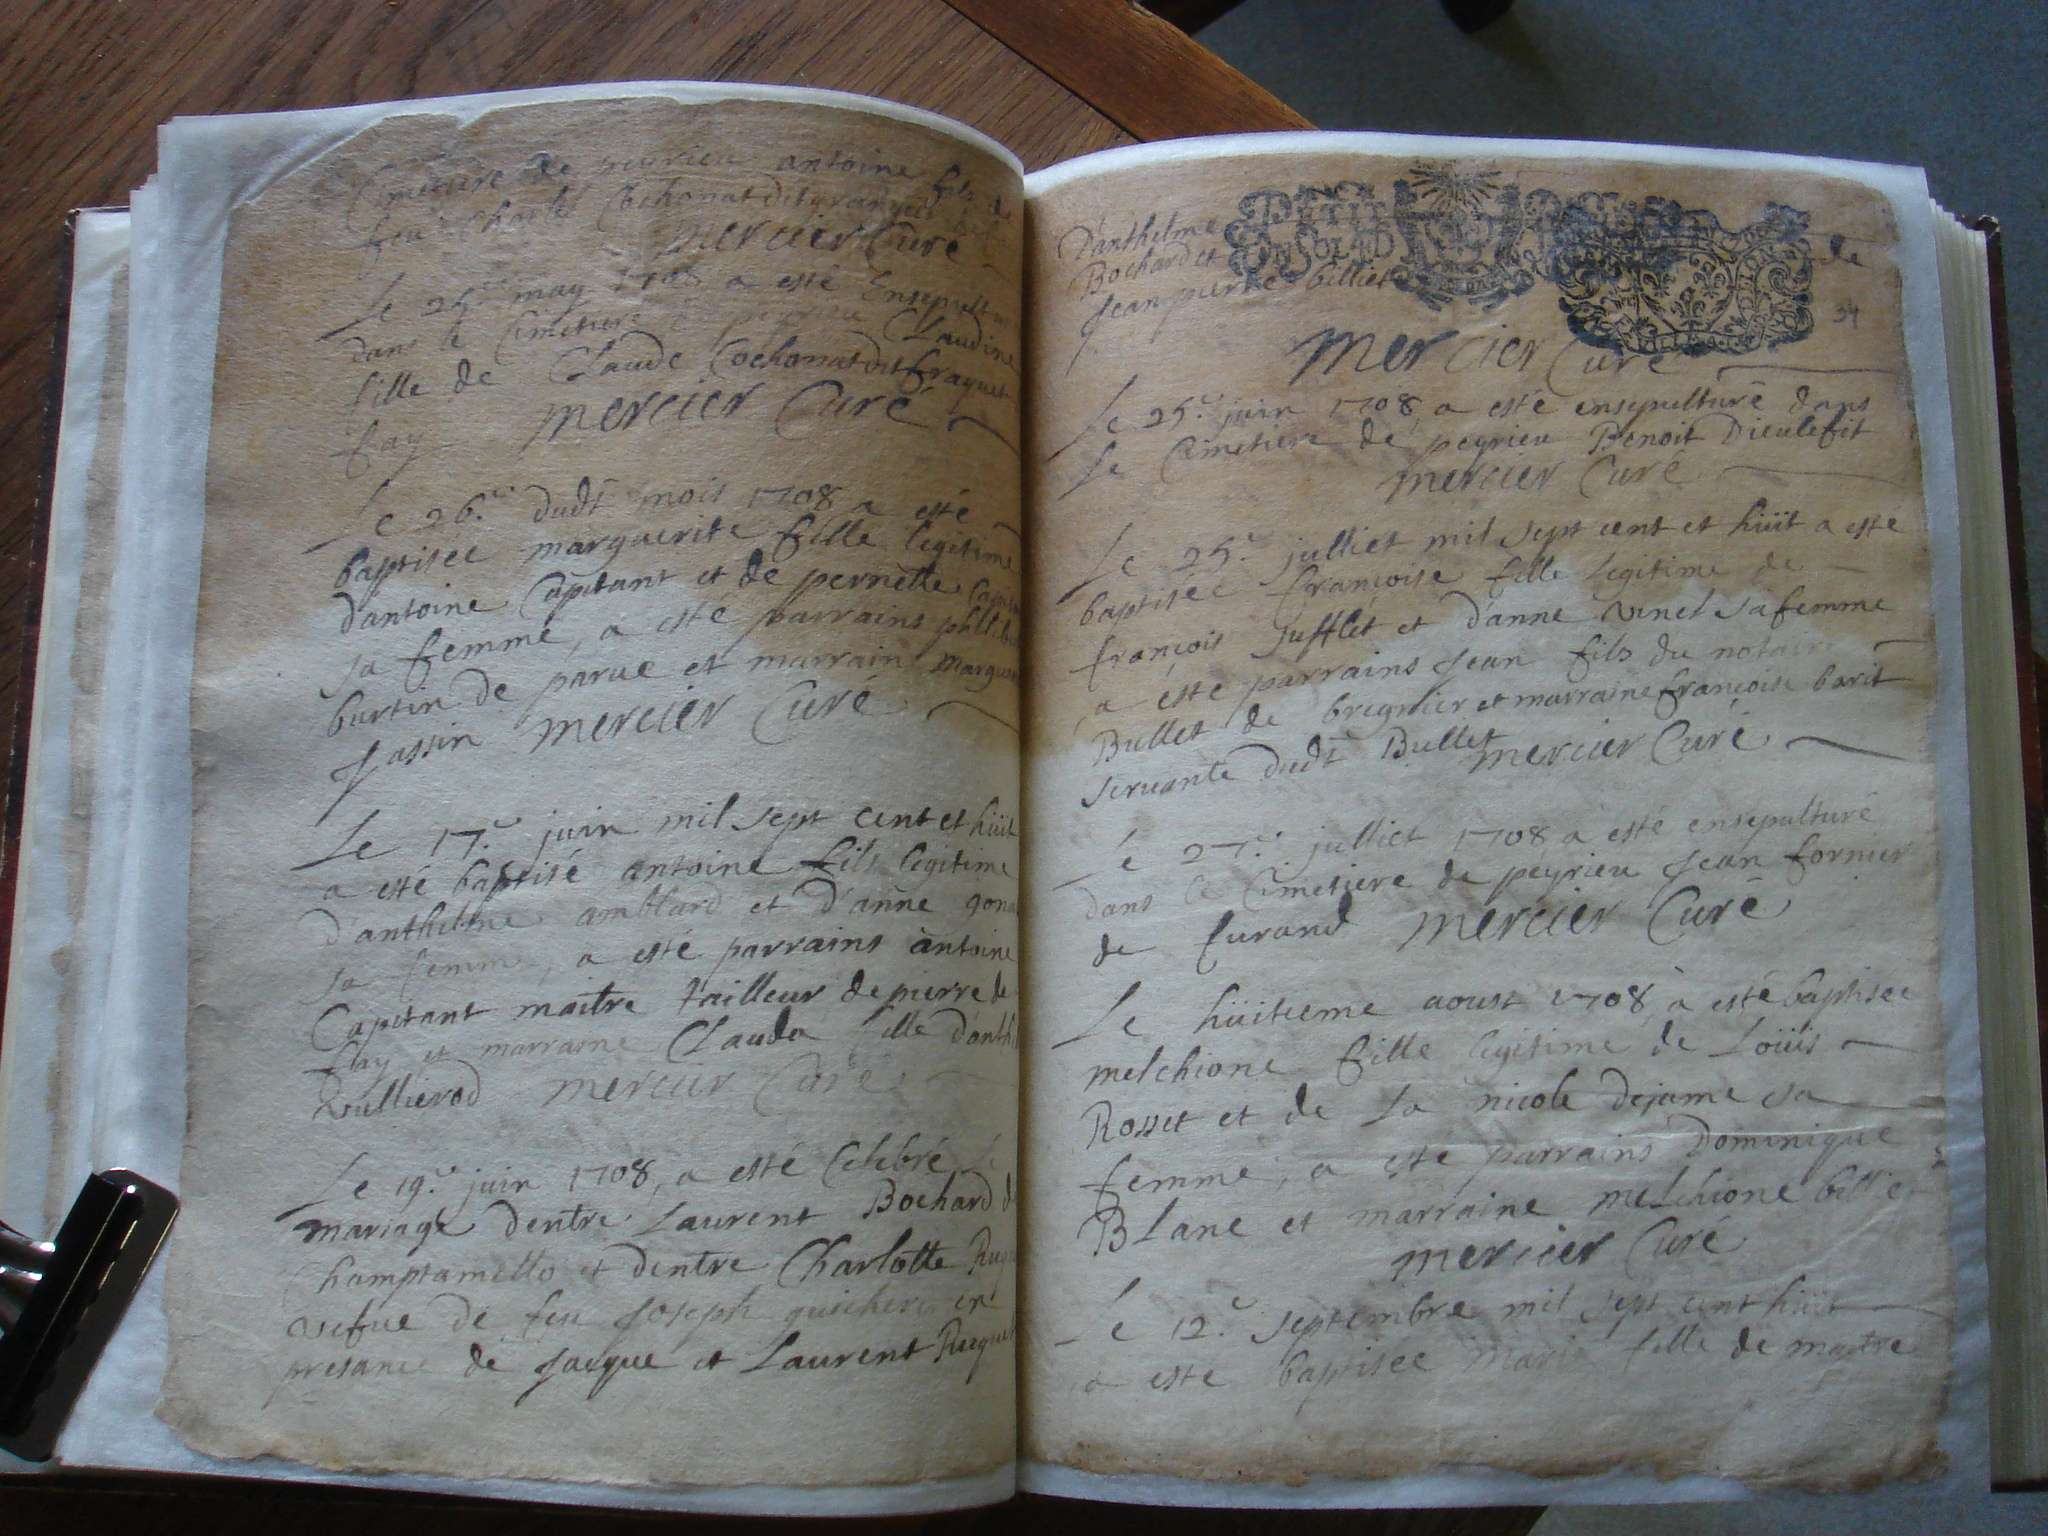 Cimetiere de peyrieu antoine fils de
feu Charle Cochonat dit
mercier Curé
Le 25.e may 1708 a esté Ensepultur
dans le Cimetiere de peyrieu Claudine
fille de Claude Cochonat dit fraquet
fay mercier Curé
Le 26.e dudt mois 1708 a esté
baptisée marguerite fille legitime
d'antoine Capitant et de pernette
sa femme, a esté parrains philib
burtin de parue et marraine margueri
Jassin mercier Curé
Le 17.e juin mil sept cent et hüit
a esté baptisé antoine fils legitime
d'anthelme amblard et d'anne
sa femme, a esté parrains antoine
Capitant maitre tailleur de pierre de
fay et marraine Clauda fille d'anth
vullierod mercier Curé
Le 19.e juin 1708, a esté Celebré le
mariage dentre Laurent Bochard d
Champtamello et dentre Charlotte
vefue de feu Joseph guichere en
presance de Jacque et Laurent
D'anthelme
Bochard et
Jean pierre billiet
de
34
mercier Curé
Le 25.e juin 1708, a esté ensepulturé dans
le Cimetiere de peyrieu Benoit Dieulefit
mercier Curé
Le 25.e julliet mil sept cent et hüit a esté
baptisée françoise fille legitime de
françois Jufflet et d'anne vinel sa femme
a esté parrains Jean fils du notaire
Bullet de bregnier et marraine françoise barit
servante dudt Bullet mercier Curé
Le 27.e julliet 1708 a esté ensepulturé
dans le Cimetiere de peyrieu Jean fornier
de Eurand mercier Curé
Le hüitieme aoust 1708, a esté baptisée
melchione fille legitime de Loüis
Rosset et de La nicole dejame sa
femme, a esté parrains Dominique
BLanc et marraine melchione billie
mercier Curé
Le 12.e septembre mil sept cent hüit
a esté baptisée Marie fille de maitre